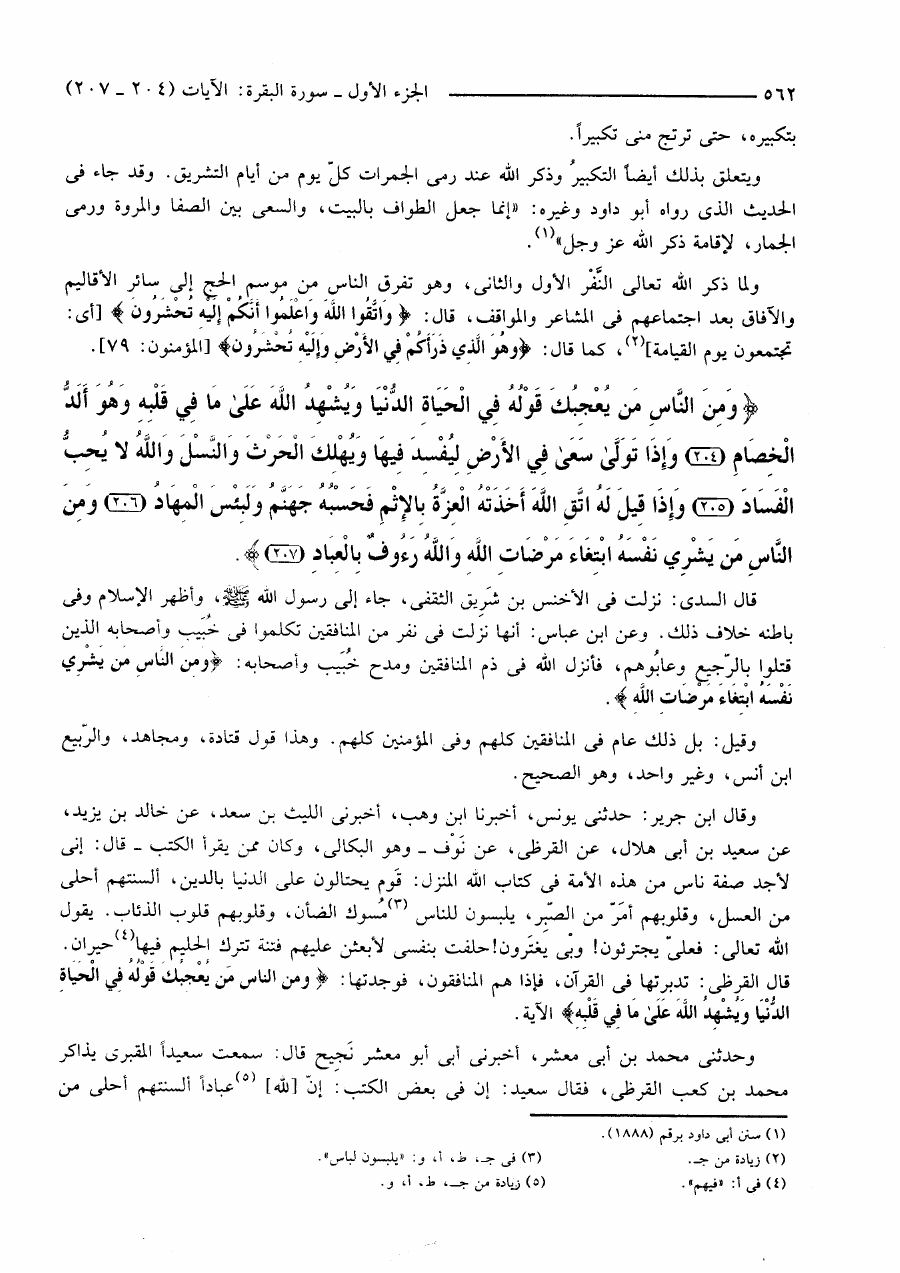 ٥٦٢ ـــــــــــــــــ الجزء الأول ـ سورة البقرة: الآيات (٢٠٤ ـ ٢٠٧)
بتكبيره، حتى ترتج منى تكبيراً.
ويتعلق بذلك أيضاً التكبيرُ وذكر الله عند رمى الجمرات كلّ يوم من أيام التشريق. وقد جاء فى
الحديث الذى رواه أبو داود وغيره: «إنما جعل الطواف بالبيت، والسعى بين الصفا والمروة ورمى
الجمار، لإقامة ذكر الله عز وجل»(١).
ولما ذكر الله تعالى النَّفْر الأول والثانى، وهو تفرق الناس من موسم الحج إلى سائر الأقاليم
والآفاق بعد اجتماعهم فى المشاعر والمواقف، قال: ﴿ وَاتَّقُوا اللَّهَ وَاعْلَمُوا أَنَّكُمْ إِلَيْهِ تُحْشَرُونَ ﴾ [أى:
تجتمعون يوم القيامة](٢)، كما قال: ﴿وَهُوَ الَّذِي ذَرَأَكُمْ فِي الأَرْضِ وَإِلَيْهِ تُحْشَرُونَ﴾ [المؤمنون: ٧٩].
﴿ وَمِنَ النَّاسِ مَن يُعْجِبُكَ قَوْلُهُ فِي الْحَيَاةِ الدُّنْيَا وَيُشْهِدُ اللَّهَ عَلَىٰ مَا فِي قَلْبِهِ وَهُوَ أَلَدُّ
الْخِصَامِ (٢٠٤) وَإِذَا تَوَلَّىٰ سَعَىٰ فِي الأَرْضِ لِيُفْسِدَ فِيهَا وَيُهْلِكَ الْحَرْثَ وَالنَّسْلَ وَاللَّهُ لا يُحِبُّ
الْفَسَادَ (٢٠٥) وَإِذَا قِيلَ لَهُ اتَّقِ اللَّهَ أَخَذَتْهُ الْعِزَّةُ بِالإِثْمِ فَحَسْبُهُ جَهَنَّمُ وَلَبِئْسَ الْمِهَادُ (٢٠٦) وَمِنَ
النَّاسِ مَن يَشْرِي نَفْسَهُ ابْتِغَاءَ مَرْضَاتِ اللَّهِ وَاللَّهُ رَءُوفٌ بِالْعِبَادِ (٢٠٧)﴾.
قال السدى: نزلت فى الأخنس بن شَرِيق الثقفى، جاء إلى رسول الله ﷺ، وأظهر الإسلام وفى
باطنه خلاف ذلك. وعن ابن عباس: أنها نزلت فى نفر من المنافقين تكلموا فى خُبَيب وأصحابه الذين
قتلوا بالرّجيع وعابُوهم، فأنزل الله فى ذم المنافقين ومدح خُبَيب وأصحابه: ﴿وَمِنَ النَّاسِ مَن يَشْرِي
نَفْسَهُ ابْتِغَاءَ مَرْضَاتِ اللَّهِ ﴾.
وقيل: بل ذلك عام فى المنافقين كلهم وفى المؤمنين كلهم. وهذا قول قتادة، ومجاهد، والرّبيع
ابن أنس، وغير واحد، وهو الصحيح.
وقال ابن جرير: حدثنى يونس، أخبرنا ابن وهب، أخبرنى الليث بن سعد، عن خالد بن يزيد،
عن سعيد بن أبى هلال، عن القرظى، عن نَوْف ـ وهو البكالى، وكان ممن يقرأ الكتب ـ قال: إنى
لأجد صفة ناس من هذه الأمة فى كتاب الله المنزل: قَوم يحتالون على الدنيا بالدين، ألسنتهم أحلى
من العسل، وقلوبهم أمَرّ من الصّبِر، يلبسون للناس (٣)مُسوك الضأن، وقلوبهم قلوب الذئاب. يقول
الله تعالى: فعلىّ يجترئون! وبى يغتَرون! حلفت بنفسى لأبعثن عليهم فتنة تترك الحليم فيها(٤)حيران.
قال القرظى: تدبرتها فى القرآن، فإذا هم المنافقون، فوجدتها: ﴿ وَمِنَ النَّاسِ مَن يُعْجِبُكَ قَوْلُهُ فِي الْحَيَاةِ
الدُّنْيَا وَيُشْهِدُ اللَّهَ عَلَىٰ مَا فِي قَلْبِهِ﴾ الآية.
وحدثنى محمد بن أبى معشر، أخبرنى أبى أبو معشر نَجِيح قال: سمعت سعيداً المقبرى يذاكر
محمد بن كعب القرظى، فقال سعيد: إن فى بعض الكتب: إنّ [لله] (٥)عباداً ألسنتهم أحلى من
(١) سنن أبى داود برقم (١٨٨٨).
(٢) زيادة من جـ. (٣) فى جـ، ط، أ، و: «يلبسون لباس».
(٤) فى أ: «فيهم». (٥) زيادة من جـ، ط، أ، و.